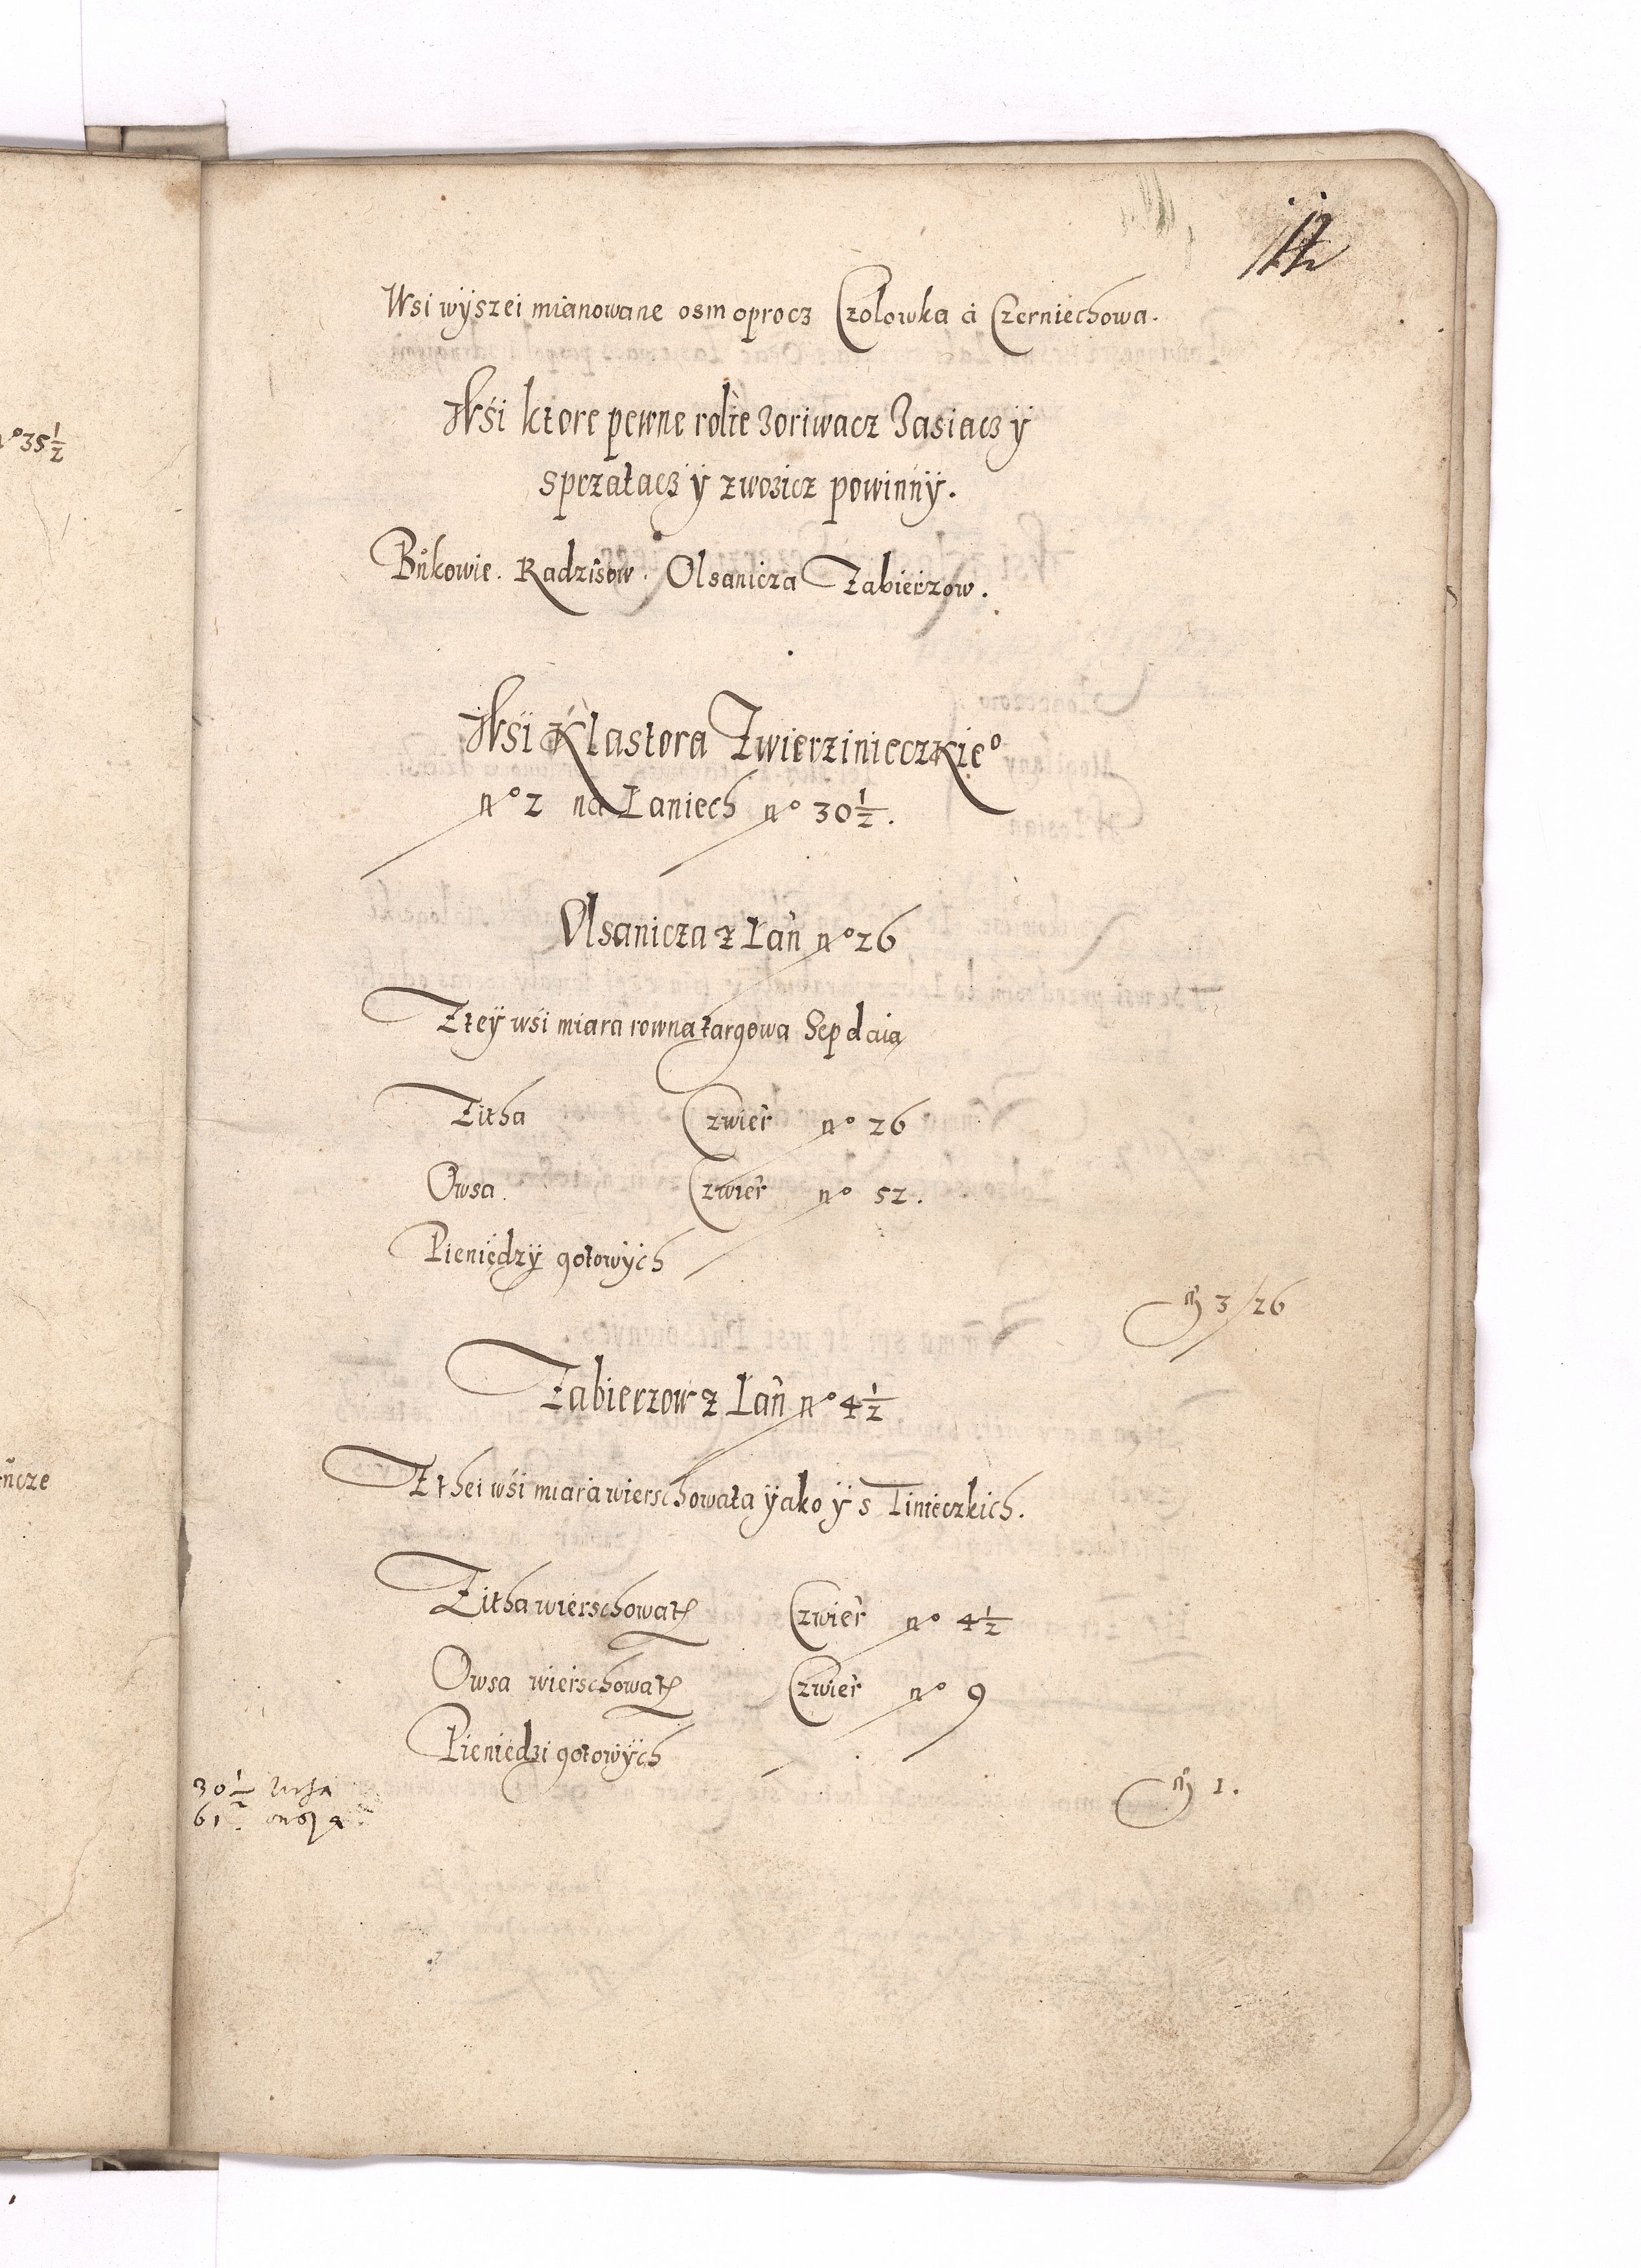 12
Wsi wÿszei mianowane osm oprocz Czolowka á Czerniechowa.
Wśi ktore pewne rolie zoriwacz zasiacz ÿ
sprzatacz ÿ zwozicz powinnÿ.
Bukowie. Radzisow. Olsanicza Zabierzow.
Wśi Klastora Zwierzinieczkieº
nº 2 na Łaniech nº 30 1/2.
Olsanicza z Łań nº 26
Z teÿ wśi miara rowna targowa Sep daią
Zitha Czwier nº 26
Owsa. Czwier nº 52.
Pieniędzÿ gotowÿch
m 3/26
Zabierzow z Łań nº 4 1/2
Z thei wśi miara wierschowata ÿako ÿ s Tinieczkich.
Zitha wierschowat Czwier nº 4 1/2
Owsa wierschowat Czwier nº 9
Pieniędzi gotowÿch
m 1.
30 1/2
61.
nº 35 1/2